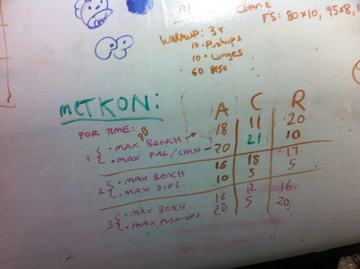 CLEAN &
FS: 80x10, 95x8, 1
WARMUP: 3x
10 · PUSHUPS
10 · LUNGES
METKON:
A C R
FOR TIME:
DB
1 { · MAX BENCH → 18 11 20
· MAX PULL/CHIN → 20 21 10
2 { · MAX BENCH 16 18 17
· MAX DIPS 10 5 5
3 { · MAX BENCH 16 12 16
· MAX PUSH-UPS 20 5 20